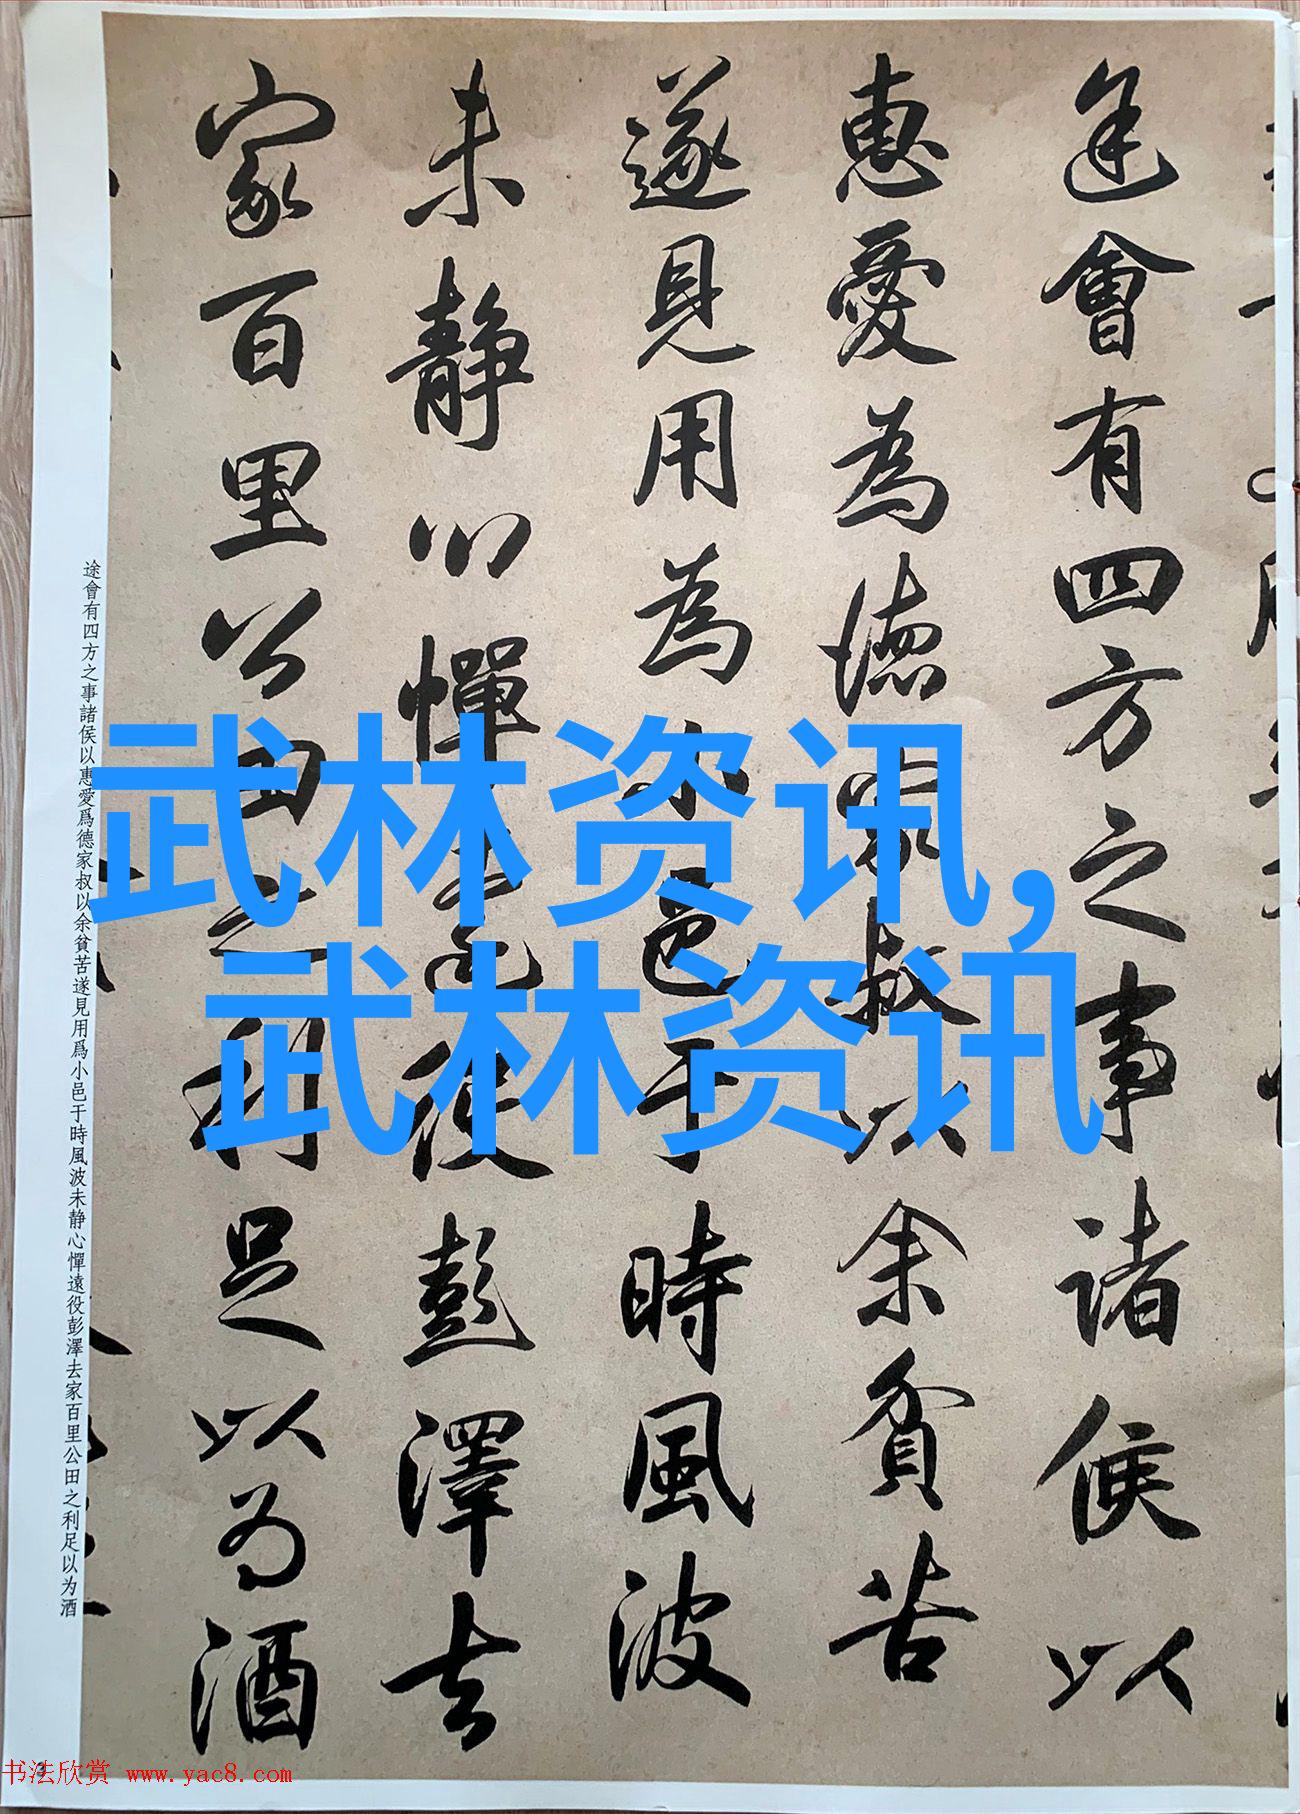 途會有四方之事諸侯以
惠愛為德家叔以余貧苦
遂見用為小邑于時風波
未静心憚遠役彭澤去
家百里公田之利足以為酒
途會有四方之事諸侯以惠愛爲德家叔以余貧苦遂見用爲小邑于時風波未静心憚遠役彭澤去家百里公田之利足以为酒
武林资讯,
武林资讯
3
书法欣赏 www.yac8.com